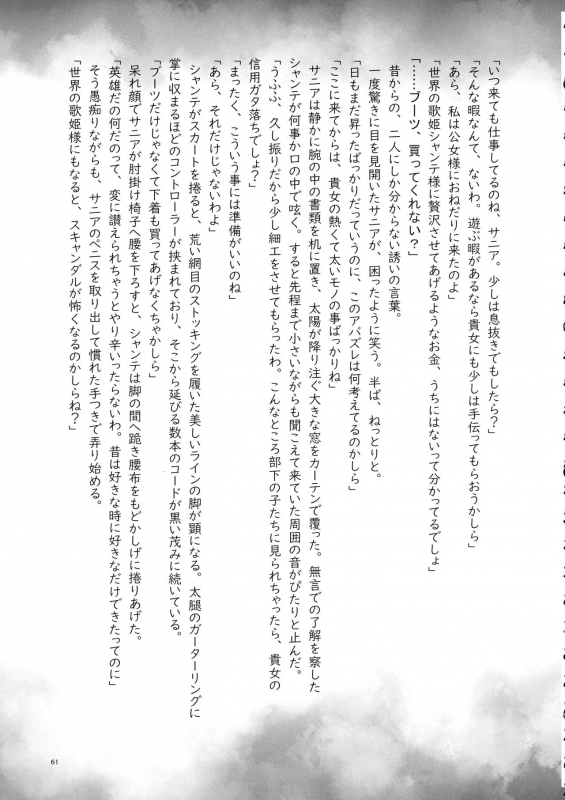 「いつ来ても仕事してるのね、サニア。少しは息抜きでもしたら？」
「そんな暇なんて、ないわ。遊ぶ暇があるなら貴女にも少しは手伝ってもらおうかしら」
「あら、私は公女様におねだりに来たのよ」
「世界の歌姫シャンテ様に贅沢させてあげるようなお金、うちにはないって分かってるでしょ」
「……ブーツ、買ってくれない？」
昔からの、二人にしか分からない誘いの言葉。
一度驚きに目を見開いたサニアが、困ったように笑う。半ば、ねっとりと。
「日もまだ昇ったばっかりだっていうのに、このアバズレは何考えてるのかしら」
「ここに来てからは、貴女の熱くて太いモノの事ばっかりね」
サニアは静かに腕の中の書類を机に置き、太陽が降り注ぐ大きな窓をカーテンで覆った。無言での了解を察した
シャンテが何事か口の中で呟く。すると先程まで小さいながらも聞こえて来ていた周囲の音がぴたりと止んだ。
「うふふ、久し振りだから少し細工をさせてもらったわ。こんなところ部下の子たちに見られちゃったら、貴女の
信用ガタ落ちでしょ？」
「まったく、こういう事には準備がいいのね」
「あら、それだけじゃないわよ」
シャンテがスカートを捲ると、荒い網目のストッキングを履いた美しいラインの脚が顕になる。太腿のガーターリングに
掌に収まるほどのコントローラーが挟まれており、そこから延びる数本のコードが黒い茂みに続いている。
「ブーツだけじゃなくて下着も買ってあげなくちゃかしら」
呆れ顔でサニアが肘掛け椅子へ腰を下ろすと、シャンテは脚の間へ跪き腰布をもどかしげに捲りあげた。
「英雄だの何だのって、変に讃えられちゃうとやり辛いったらないわ。昔は好きな時に好きなだけできたってのに」
そう愚痴りながらも、サニアのペニスを取り出して慣れた手つきで弄り始める。
「世界の歌姫様にもなると、スキャンダルが怖くなるのかしらね？」
61